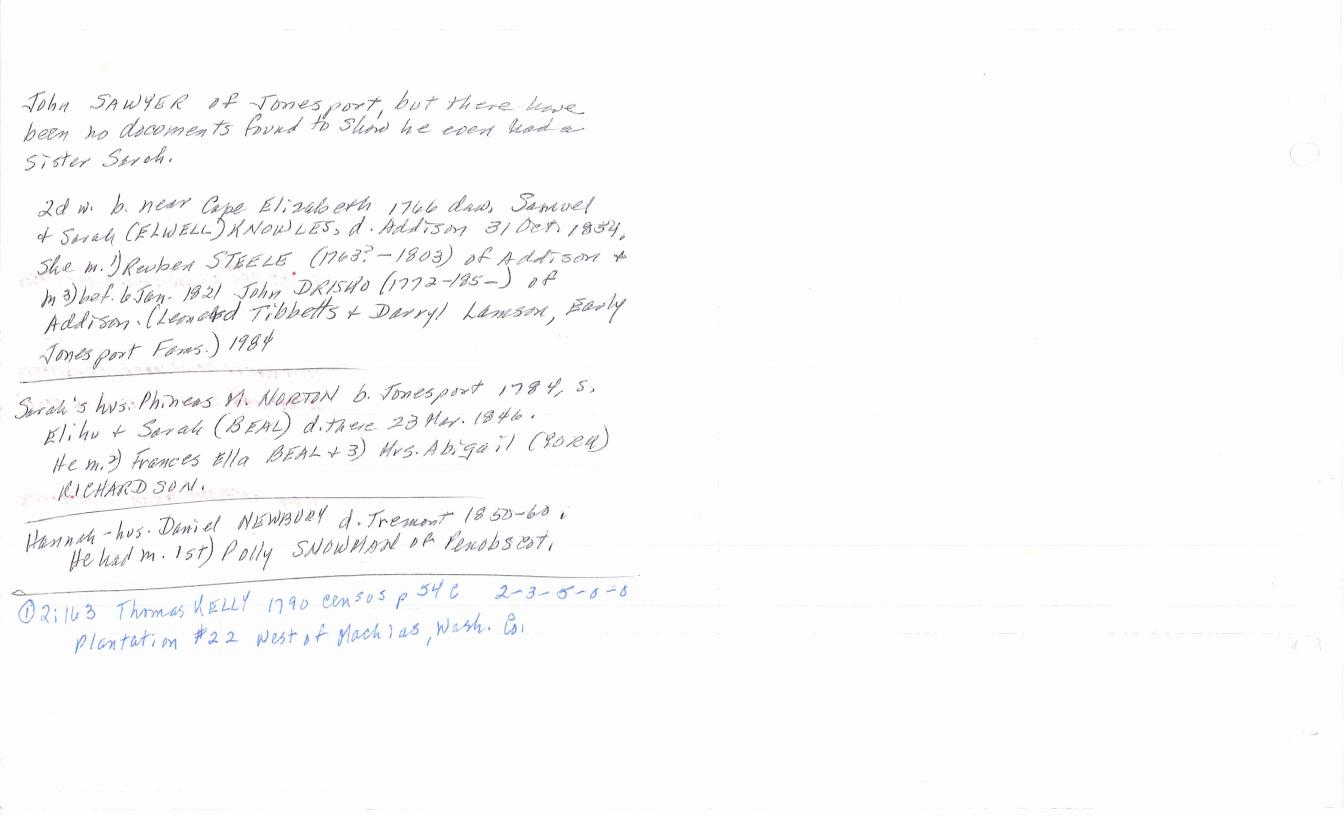 John SAWYER of Jonesport, but there have
been no documents found to show he even had a
sister Sarah.
2d w. b. near Cape Elizabeth 1766 dau. Samuel
+ Sarah (ELWELL) KNOWLES, d. Addison 31 Oct. 1854.
She m. 1) Reuben STEELE (1763?-1803) of Addison +
m 3) bef. 6 Jan. 1821 John DRISKO (1772-185-) of
Addison. (Leonard Tibbetts + Darryl Lamson, Early
Jonesport Fams.) 1984
Sarah's hus. Phineas M. NORTON b. Jonesport 1784, s.
Elihu + Sarah (BEAL) d. there 23 Mar. 1846.
He m. 2) Frances Ella BEAL + 3) Mrs. Abigail (YORK)
RICHARDSON.
Hannah - hus. Daniel NEWBURY d. Tremont 1850-60.
He had m. 1st) Polly SNOWMAN of Penobscot.
① 2:163 Thomas KELLY 1790 census p 54 c 2-3-5-0-0
Plantation #22 West of Machias, Wash. Co.